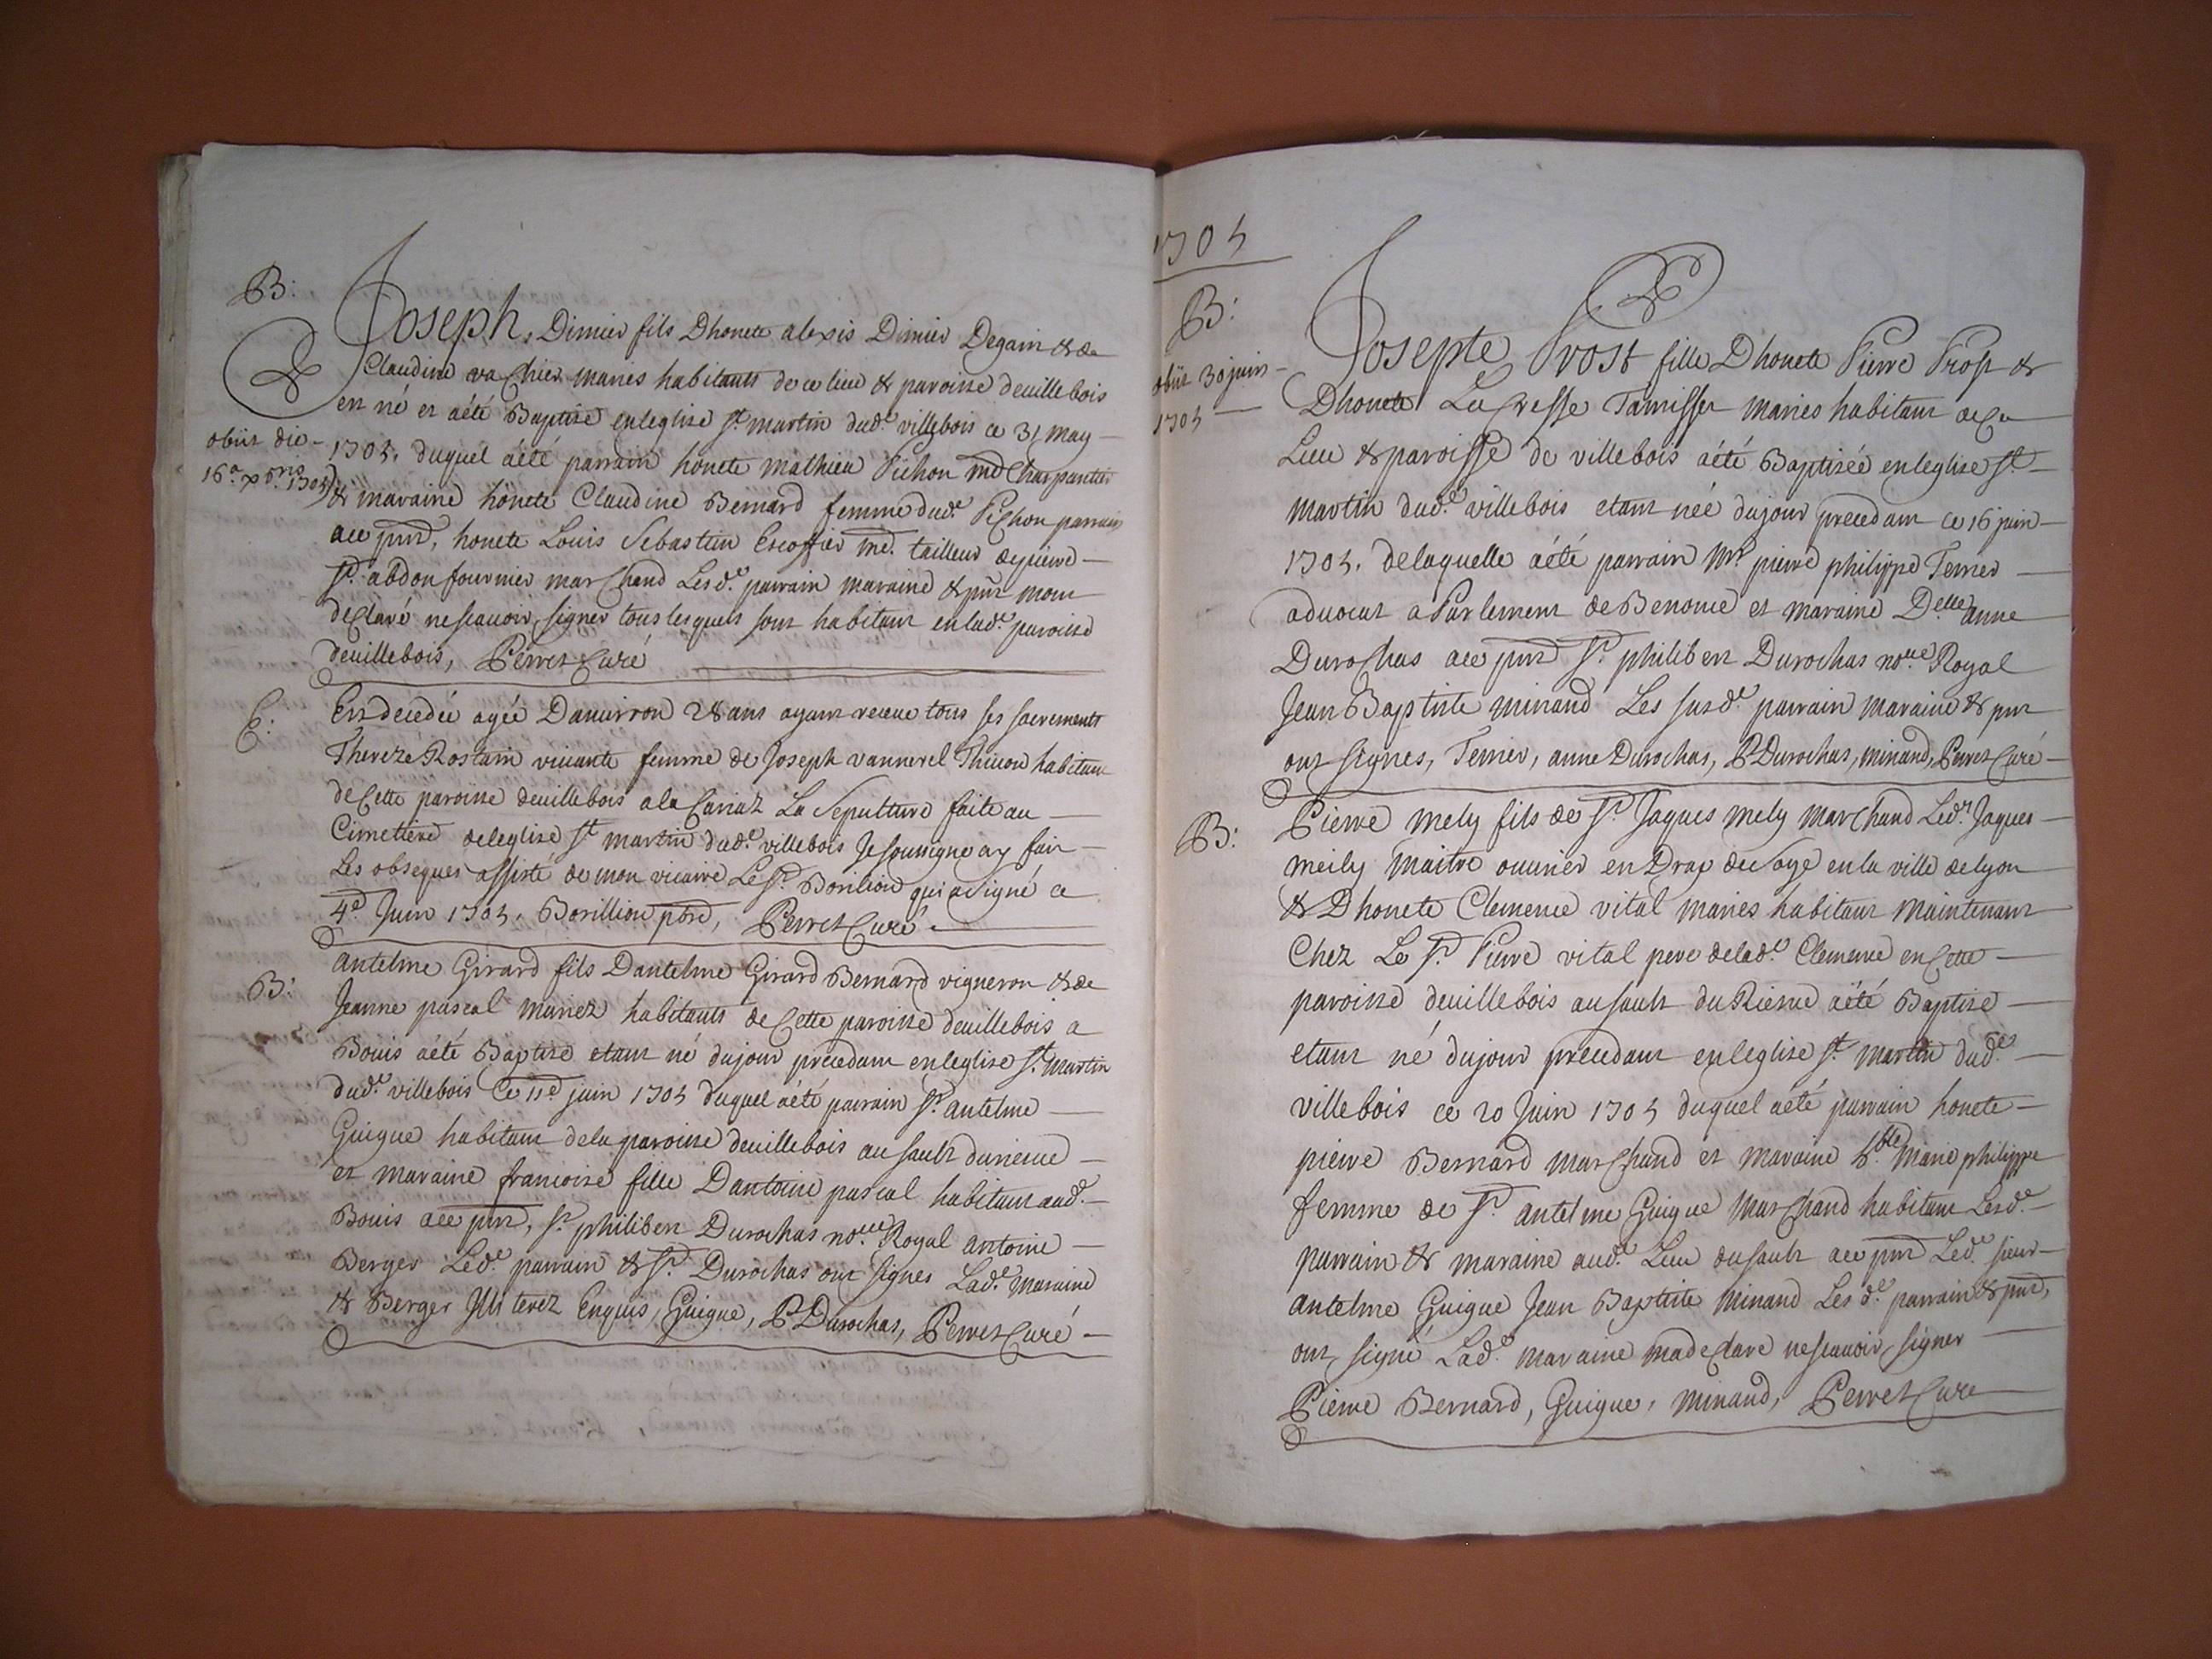 B:
Joseph, Dimier fils Dhonete alexis Dimier Degain & de
Claudine vachier maries habitants de ce lieu & paroisse deuillebois
est né et aété Baptise enleglise St. martin dud.e villebois ce 31 may
obiit die
16.a xbris 1705
1705. duquel aété parrain honete mathieu Pichon md Charpantier
& maraine honete Claudine Bernard femme dud.e Pichon parrain
aee pnd, honete Louis Sebastien Escoffier md. tailleur depierre
Sr. abdon fournier marchand Lesd.e parrain maraine & pnt mont
declaré nescauoir signer tous lesquels sont habitant enlad.e paroisse
deuillebois, Perret Curé
E:
Est decedée agée Danuirron 28 ans ayant receue tous ses sacrements
Thereze Rostain viuante femme de Joseph vannerel Thiuon habitant
decette paroisse deuillebois ala Cariaz La Sepulture faite au
Cimettere deleglise St martin dud.e villebois Je soussigne ay fait
Les obseques assisté de mon vicaire Le Sr. Borillion qui a signé ce
4e Juin 1705. Borillion pbre, Perret Curé
B:
antelme Girard fils Dantelme Girard Bernard vigneron & de
Jeanne pascal mariez habitants decette paroisse deuillebois a
Bouis aété Baptize etant né dujour precedant enleglise St. martin
dud.e villebois Ce 11e juin 1705 duquel aété parrain Sr. antelme
Guigue habitant delaparoisse deuillebois au sault durieme
et maraine francoise fille Dantoine pascal habitant aud.
Bouis aee pnt, Sr. philibert Durochas no.re Royal antoine
Berger Led.e parrain & Sr. Durochas ont signes Lad.e maraine
& Berger Illiterez Enquis, Guigue, P Durochas, Perret Curé
1705
B:
obiit 30 juin
1705
Josepte Prost fille Dhonete Pierre Prost &
Dhonete Lucresse Tamisser maries habitant dece
Lieu & paroisse de villebois aété Baptisée enleglise St.
martin dud.e villebois etant née dujour precedant ce 16 juin
1705. delaquelle aété parrain Mr. pierre philippe Terrier
aduocat a Parlement de Benonce et maraine D.elle anne
Durochas aee pnd Sr. philibert Durochas no.re Royal
Jean Baptiste minand Les susd.e parrain maraine & pnt
ont signes, Terrier, anne Durochas, P Durochas, minand, Perret Curé
B:
Pierre mely fils de Sr. Jaques mely marchand Led.e Jaques
meily maitre ouurier en Drap de soye en la ville de lyon
& Dhonete Clemence vital maries habitant maintenant
Chez Le Sr. Pierre vital pere delad.e Clemence en Cette
paroisse deuillebois ausault du Rieme aété Baptise
etant né dujour precedant enleglise St. martin dud.e
villebois ce 20 Juin 1705 duquel aété parrain honete
pierre Bernard marchand et maraine h.ble marie philippe
femme de Sr. antelme Guigue marchand habitant Lesd.e
parrain & maraine aud.e Lieu du sault aee pnd Led.e sieur
antelme Guigue Jean Baptiste minand Les d.e parrain & pnd,
ont signé Lad.e maraine madeclare nescauoir signer
Pierre Bernard, Guigue, minand, Perret Cure